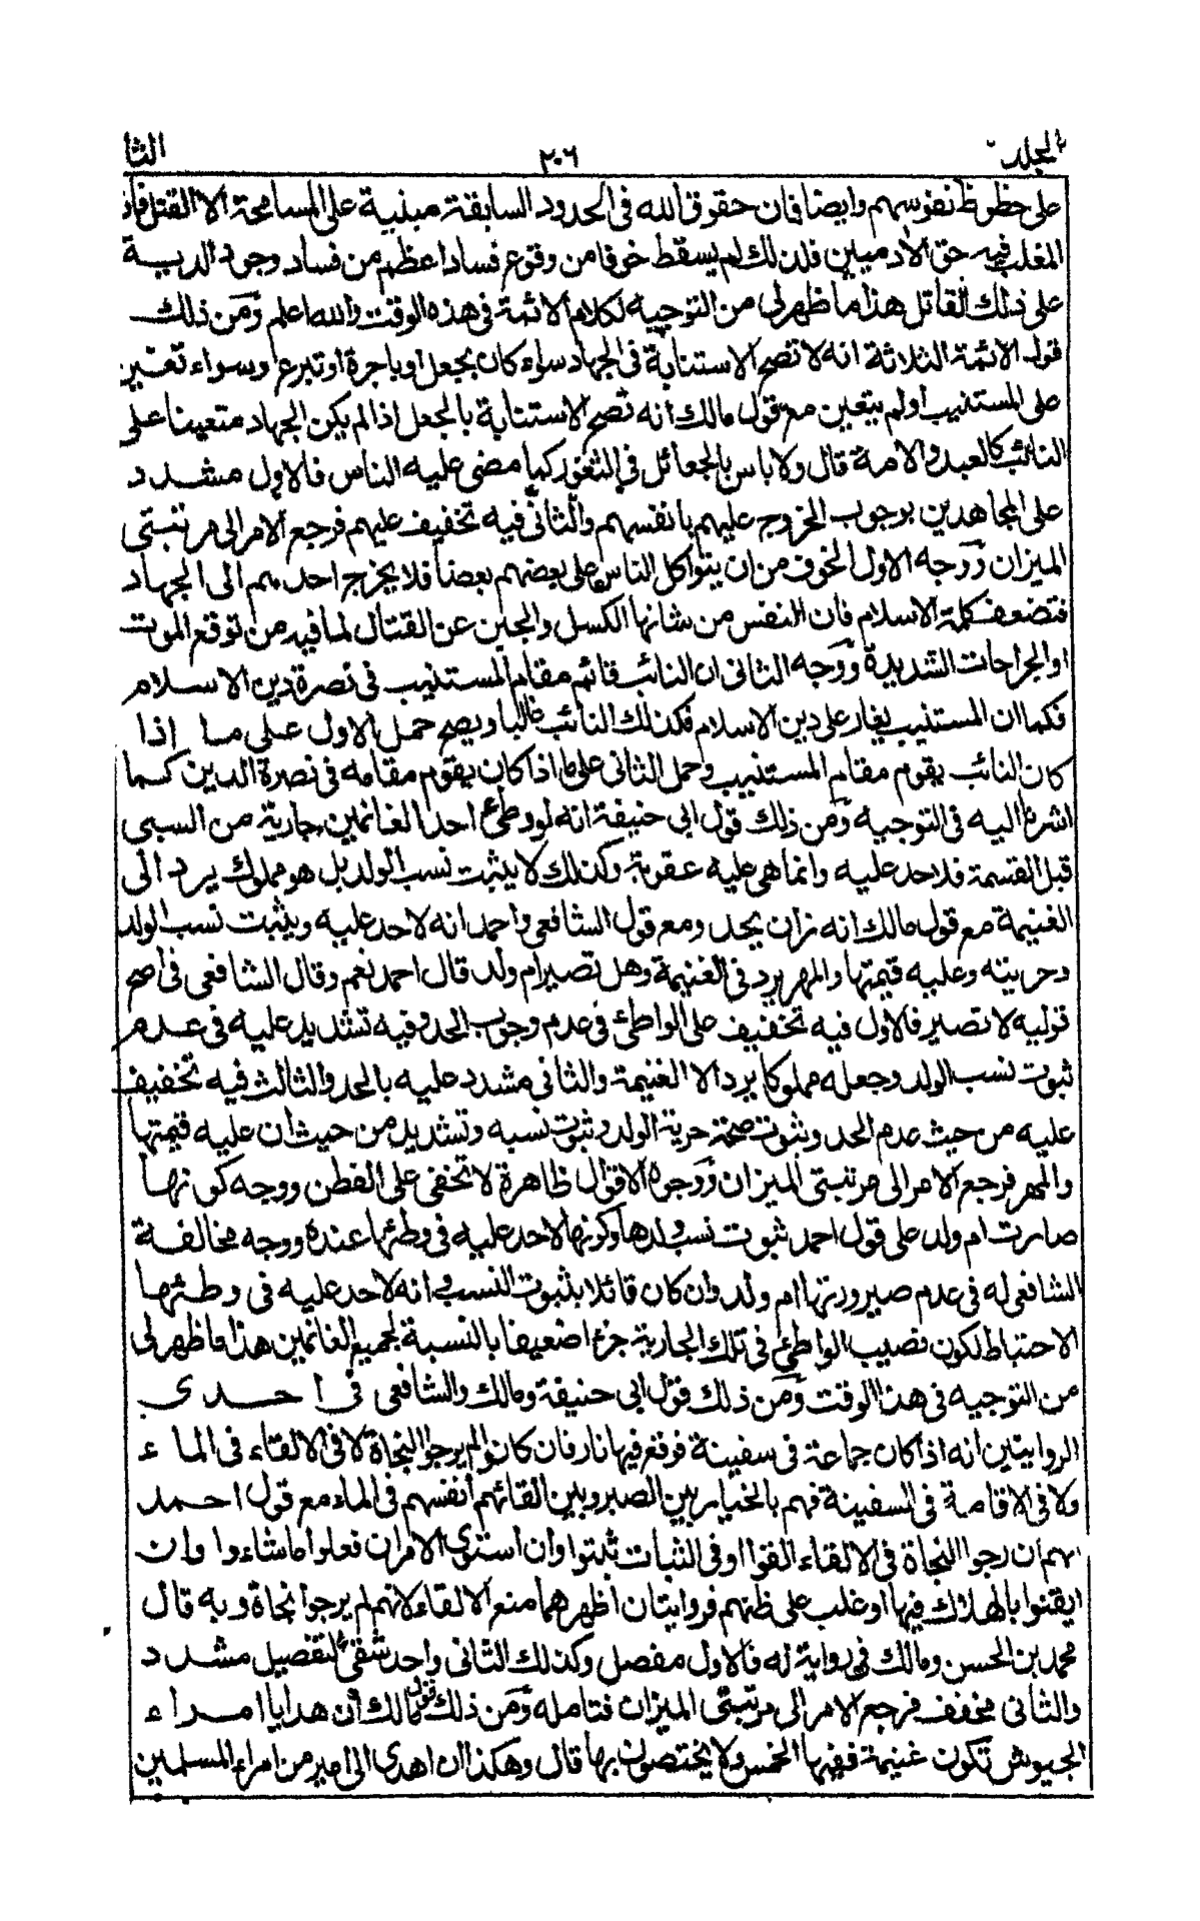 الجلد ٢٠٦ الثا
على حظوظ نفوسهم وايضا فان حقوق الله فى الحدود السابقة مبنية على المسامحة الا القتل فان
المغلب فيه حق الآدميين فلذلك لم يسقط خوفا من وقوع فساد اعظم من فساد وجود الدية
على ذلك القاتل هذا ما ظهر لى من التوجيه لكلام الائمة فى هذه الوقت والله اعلم ومن ذلك
قول الائمة الثلاثة انه لا تصح الاستنابة فى الجهاد سواء كان بجعل او باجرة او تبرع وسواء تعين
على المستنيب او لم يتعين مع قول مالك أنه تصح الاستنابة بالجعل اذا لم يكن الجهاد متعينا على
النائب كالعبد والامة قال ولا باس بالجعائل فى الثغور كما مضى عليه الناس فالاول مشدد
على المجاهدين بوجوب الخروج عليهم بانفسهم والثانى فيه تخفيف عليهم فرجع الامر الى مرتبتى
الميزان ووجه الاول الخوف من ان يتواكل الناس على بعضهم بعضا فلا يخرج احد منهم الى الجهاد
فتضعف كلمة الاسلام فان النفس من شانها الكسل والجبن عن القتال لما فيه من توقع الموت
او الجراحات الشديدة ووجه الثانى ان النائب قائم مقام المستنيب فى نصرة دين الاسلام
فكما ان المستنيب يغار على دين الاسلام فكذلك النائب غالبا ويصح حمل الاول على ما اذا
كان النائب يقوم مقام المستنيب وحمل الثانى على ما اذا كان يقوم مقامه فى نصرة الدين كما
اشرنا اليه فى التوجيه ومن ذلك قول ابى حنيفة انه لو وطئ احد الغانمين جارية من السبى
قبل القسمة فلا حد عليه وانما هى عليه عقوبة وكذلك لا يثبت نسب الولد بل هو مملوك يرد الى
الغنيمة مع قول مالك انه زان يحد ومع قول الشافعى واحمد انه لا حد عليه ويثبت نسب الولد
وحريته وعليه قيمتها والمهر يرد فى الغنيمة وهل تصير ام ولد قال احمد نعم وقال الشافعى فى أصح
قوليه لا تصير فالاول فيه تخفيف على الواطئ فى عدم وجوب الحد وفيه تشديد عليه فى عدم
ثبوت نسب الولد وجعله مملوكا يرد الا الغنيمة والثانى مشدد عليه بالحد والثالث فيه تخفيف
عليه من حيث عدم الحد وثبوت صحة حرية الولد وثبوت نسبه وتشديد من حيث ان عليه قيمتها
والمهر فرجع الامر الى مرتبتى الميزان ووجوه الاقوال ظاهرة لا تخفى على الفطن ووجه كونها
صارت ام ولد على قول احمد ثبوت نسب ولدها وكونها لا حد عليه فى وطئها عنده ووجه مخالفة
الشافعى له فى عدم صيرورتها ام ولد وان كان قائلا بثبوت النسب و انه لا حد عليه فى وطئها
الاحتياط لكون نصيب الواطئ فى تلك الجارية جزءا ضعيفا بالنسبة لجميع الغانمين هذا ما ظهر لى
من التوجيه فى هذا الوقت ومن ذلك قول ابى حنيفة ومالك والشافعى فى احدى
الروايتين انه اذا كان جماعة فى سفينة فوقع فيها نار فان كانوا لم يرجوا النجاة لا فى الالقاء فى الماء
ولا فى الاقامة فى السفينة فهم بالخيار بين الصبر وبين القائهم أنفسهم فى الماء مع قول احمد
انهم ان رجوا النجاة فى الالقاء القوا او فى الثبات ثبتوا وان استوى الامران فعلوا ما شاءوا وان
ايقنوا بالهلاك فيها او غلب على ظنهم فروايتان أظهرهما منع الالقاء لانهم لم يرجوا نجاة وبه قال
محمد بن الحسن ومالك فى رواية له فالاول مفصل وكذلك الثانى واحد شقى التفصيل مشدد
والثانى مخفف فرجع الامر الى مرتبتى الميزان فتامله ومن ذلك قول مالك أن هدايا امراء
الجيوش تكون غنيمة ففيها الخمس ولا يختصون بها قال وهكذا ان اهدى الى امير من امراء المسلمين